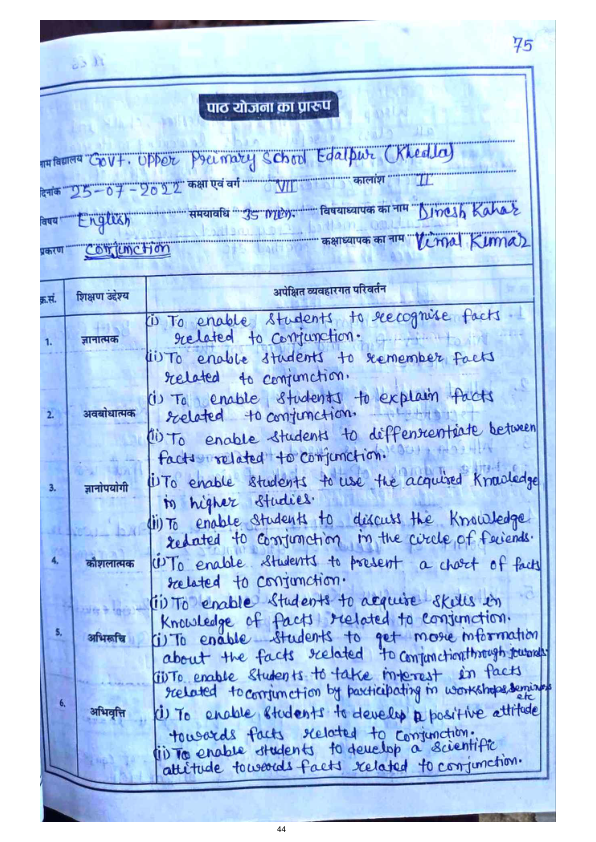 75
पाठ योजना का प्रारूप
नाम विद्यालय Govt. Upper Primary School Edalpur (Khedla)
दिनांक 25-07-2022 कक्षा एवं वर्ग VII कालांश II
विषय English समयावधि 35 min. विषयाध्यापक का नाम Dinesh Kahar
प्रकरण Conjunction कक्षाध्यापक का नाम Vimal Kumar
क्र.सं. शिक्षण उद्देश्य अपेक्षित व्यवहारगत परिवर्तन
1. ज्ञानात्मक (i) To enable students to recognise facts
related to conjunction.
(ii) To enable students to remember facts
related to conjunction.
2. अवबोधात्मक (i) To enable students to explain facts
related to conjunction.
(ii) To enable students to diffenrentiate between
facts related to conjunction.
3. ज्ञानोपयोगी (i) To enable students to use the acquired knowledge
in higher studies.
(ii) To enable students to discuss the knowledge
related to conjunction in the circle of friends.
4. कौशलात्मक (i) To enable students to present a chart of facts
related to conjunction.
(ii) To enable students to acquire skills in
knowledge of facts related to conjunction.
5. अभिरूचि (i) To enable students to get more information
about the facts related to conjunction through
(ii) To enable students to take interest in facts
related to conjunction by participating in workshops, seminars
etc
6. अभिवृत्ति (i) To enable students to develop a positive attitude
towards facts related to conjunction.
(ii) To enable students to develop a scientific
attitude towards facts related to conjunction.
44